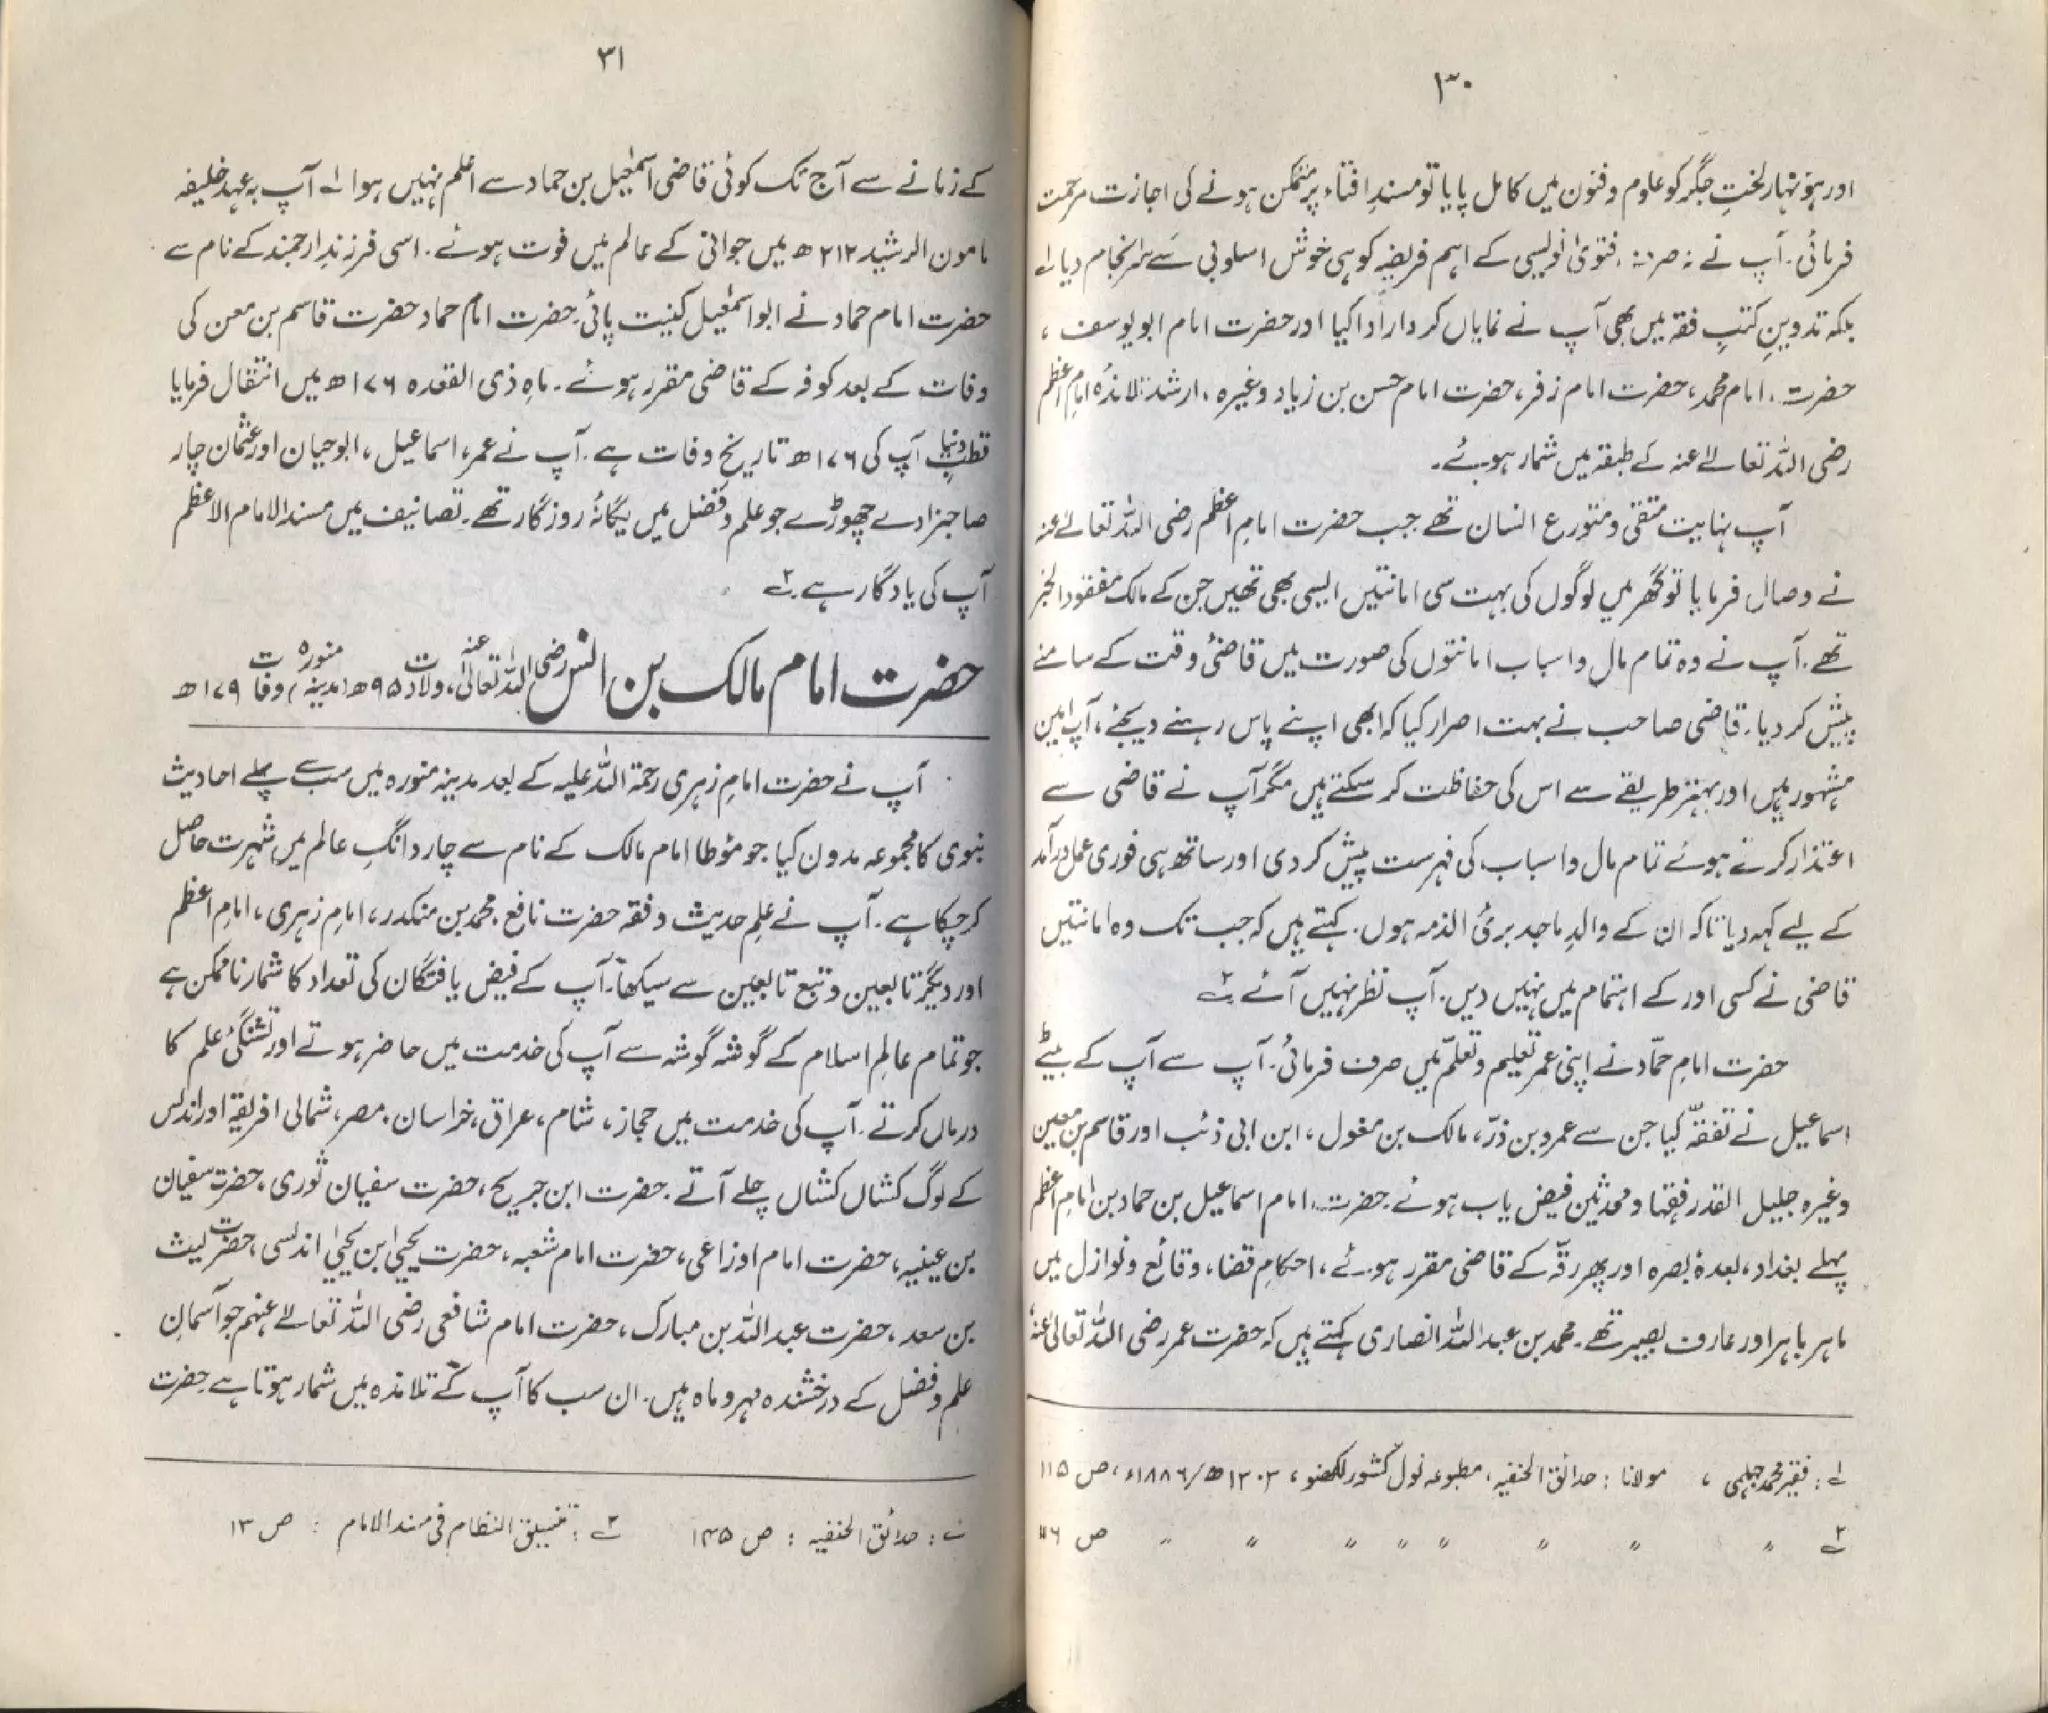 ۳۰
اور ہونہار لختِ جگر کو علوم و فنون میں کامل پایا تو مسندِ افتاء پر متمکن ہونے کی اجازت مرحمت
فرمائی۔ آپ نے نہ صرف فتویٰ نویسی کے اہم فریضہ کو ہی خوش اسلوبی سے سرانجام دیا ۱؎
بلکہ تدوینِ کتبِ فقہ میں بھی آپ نے نمایاں کردار ادا کیا اور حضرت امام ابویوسف ،
حضرت امام محمد، حضرت امام زفر، حضرت امام حسن بن زیاد وغیرہ، ارشد تلامذۂ امامِ اعظم
رضی اللہ تعالےٰ عنہ کے طبقہ میں شمار ہوئے۔
آپ نہایت متقی و متورع انسان تھے جب حضرت امامِ اعظم رضی اللہ تعالےٰ عنہ
نے وصال فرمایا تو گھر میں لوگوں کی بہت سی امانتیں ایسی بھی تھیں جن کے مالک مفقود الخبر
تھے۔ آپ نے وہ تمام مال و اسباب امانتوں کی صورت میں قاضئ وقت کے سامنے
پیش کر دیا۔ قاضی صاحب نے بہت اصرار کیا کہ ابھی اپنے پاس رہنے دیجئے، آپ امین
مشہور ہیں اور بہتر طریقے سے اس کی حفاظت کر سکتے ہیں مگر آپ نے قاضی سے
اعتذار کرتے ہوئے تمام مال و اسباب کی فہرست پیش کر دی اور ساتھ ہی فوری عمل درآمد
کے لیے کہہ دیا تاکہ ان کے والدِ ماجد برئ الذمہ ہوں۔ کہتے ہیں کہ جب تک وہ امانتیں
قاضی نے کسی اور کے اہتمام میں نہیں دیں۔ آپ نظر نہیں آئے ۲؎
حضرت امامِ حمّاد نے اپنی عمر تعلیم و تعلّم میں صرف فرمائی۔ آپ سے آپ کے بیٹے
اسماعیل نے تفقّہ کیا جن سے عمرو بن ذرّ، مالک بن مغول، ابن ابی ذئب اور قاسم بن معین
وغیرہ جلیل القدر فقہا و محدثین فیض یاب ہوئے۔ حضرت امام اسماعیل بن حماد بن امامِ اعظم
پہلے بغداد، بعدہٗ بصرہ اور پھر رقّہ کے قاضی مقرر ہوئے، احکامِ قضا، وقائع و نوازل میں
ماہر باہر اور عارف بصیر تھے۔ محمد بن عبداللہ انصاری کہتے ہیں کہ حضرت عمر رضی اللہ تعالیٰ عنہٗ
۱؎ : فقیر محمد جہلمی ، مولانا : حدائق الحنفیہ، مطبوعہ نول کشور لکھنو، ۱۳۰۳ھ/۱۸۸۶ء، ص ۱۱۵
۲؎ 〃 〃 〃 〃 〃 〃 〃 〃 ص ۱۱۶
۳۱
کے زمانے سے آج تک کوئی قاضی اسمٰعیل بن حماد سے اعلم نہیں ہوا ۱؎ آپ بہ عہد خلیفہ
مامون الرشید ۲۱۲ھ میں جوانی کے عالم میں فوت ہوئے۔ اسی فرزندِ ارجمند کے نام سے
حضرت امام حماد نے ابو اسمٰعیل کنیت پائی۔ حضرت امام حماد حضرت قاسم بن معن کی
وفات کے بعد کوفہ کے قاضی مقرر ہوئے۔ ماہِ ذی القعدہ ۱۷۶ھ میں انتقال فرمایا
قطبِ دنیا آپ کی ۱۷۶ھ تاریخِ وفات ہے۔ آپ نے عمر، اسماعیل، ابوحیان اور عثمان چار
صاحبزادے چھوڑے جو علم و فضل میں یگانۂ روزگار تھے۔ تصانیف میں مسند الامام الاعظم
آپ کی یادگار ہے ۲؎
حضرت امام مالک بن انس رضی اللہ تعالیٰ عنہ، ولادت ۹۵ھ (مدینہ منورہ) وفات ۱۷۹ھ
آپ نے حضرت امامِ زہری رحمۃ اللہ علیہ کے بعد مدینہ منورہ میں سب سے پہلے احادیث
نبوی کا مجموعہ مدون کیا جو مؤطا امام مالک کے نام سے چار دانگِ عالم میں شہرت حاصل
کر چکا ہے۔ آپ نے علمِ حدیث و فقہ حضرت نافع، محمد بن منکدر، امامِ زہری، امامِ اعظم
اور دیگر تابعین و تبع تابعین سے سیکھا۔ آپ کے فیض یافتگان کی تعداد کا شمار ناممکن ہے
جو تمام عالمِ اسلام کے گوشہ گوشہ سے آپ کی خدمت میں حاضر ہوتے اور تشنگئ علم کا
درماں کرتے۔ آپ کی خدمت میں حجاز، شام، عراق، خراسان، مصر، شمالی افریقہ اور اندلس
کے لوگ کشاں کشاں چلے آتے۔ حضرت ابن جریج، حضرت سفیان ثوری، حضرت سفیان
بن عینیہ، حضرت امام اوزاعی، حضرت امام شعبہ، حضرت یحییٰ ابن یحییٰ اندلسی، حضرت لیث
بن سعد، حضرت عبداللہ بن مبارک، حضرت امام شافعی رضی اللہ تعالےٰ عنہم جو آسمانِ
علم و فضل کے درخشندہ مہر و ماہ ہیں۔ ان سب کا آپ کے تلامذہ میں شمار ہوتا ہے حضرت
۱؎ : حدائق الحنفیہ : ص ۱۴۵ ۲؎ : تنسیق النظام فی مسند الامام : ص ۱۳